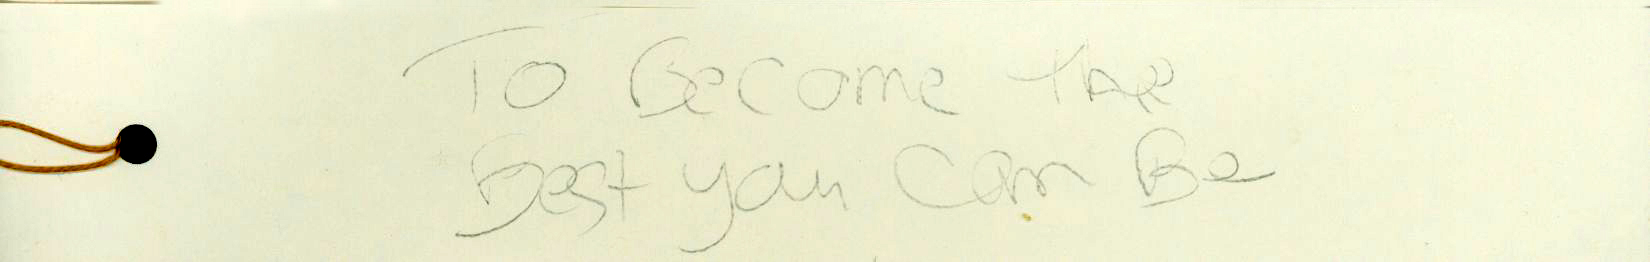 To Become the
Best you can Be